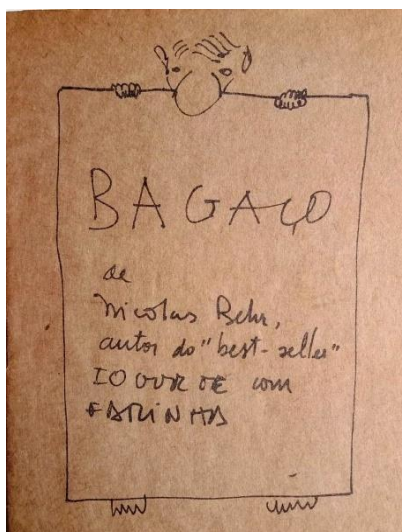 BAGAÇO
de
Nicolas Behr,
autor do "best-seller"
IOGURTE com
FARINHA